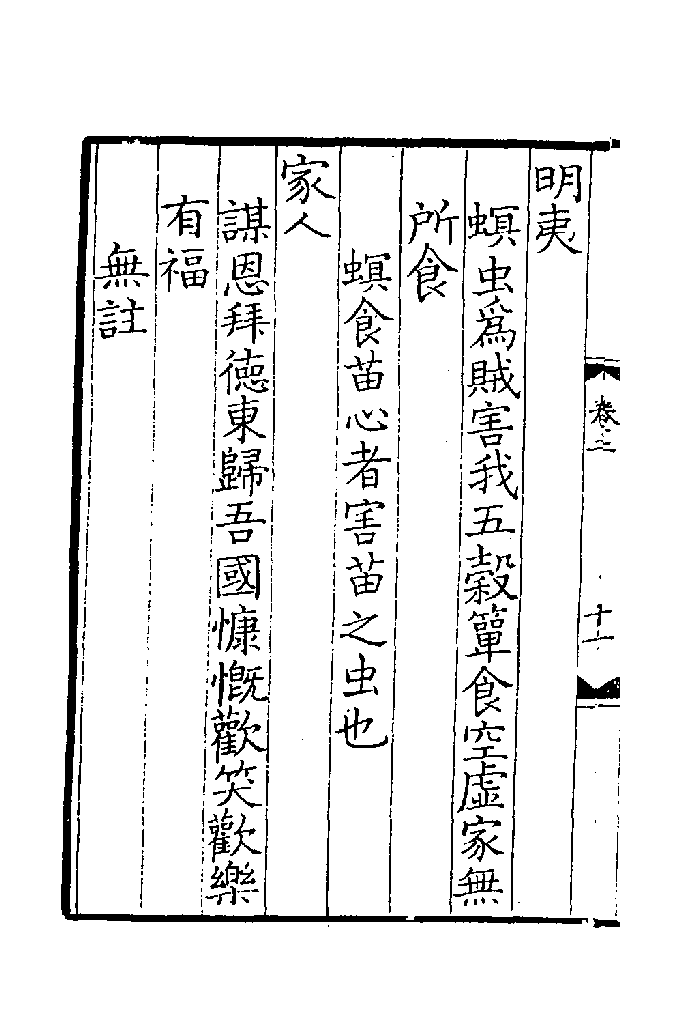 明夷
螟虫爲賊害我五穀簞食空虛家無
所食
螟食苗心者害苗之虫也
家人
謀恩拜德東歸吾國慷慨歡笑歡樂
有福
無註
卷之
十一